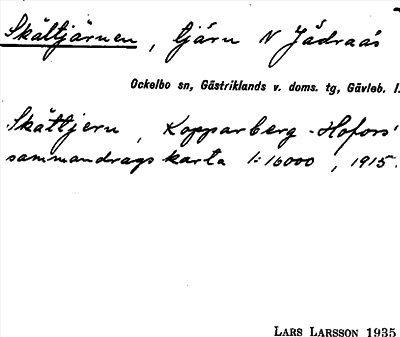 Skältjärnen, tjärn N Jädraås
Ockelbo sn, Gästriklands v. doms. tg, Gävleb. l.
Skältjern, Kopparberg-Hofors'
sammandragskarta 1:16000, 1915.
LARS LARSSON 1935